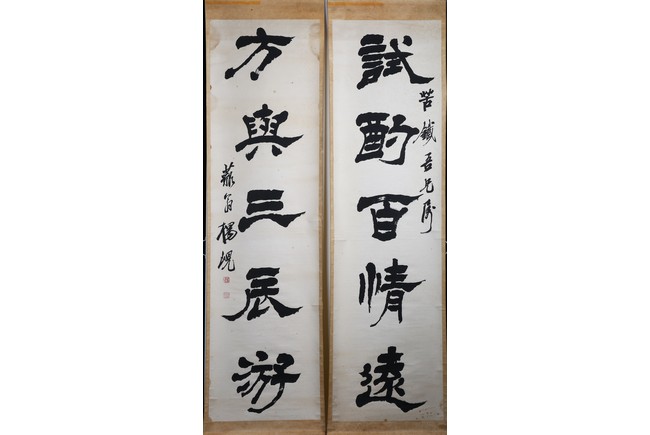 苦鐵吾兄属
試酌百情遠
方與三辰游
藐翁楊峴